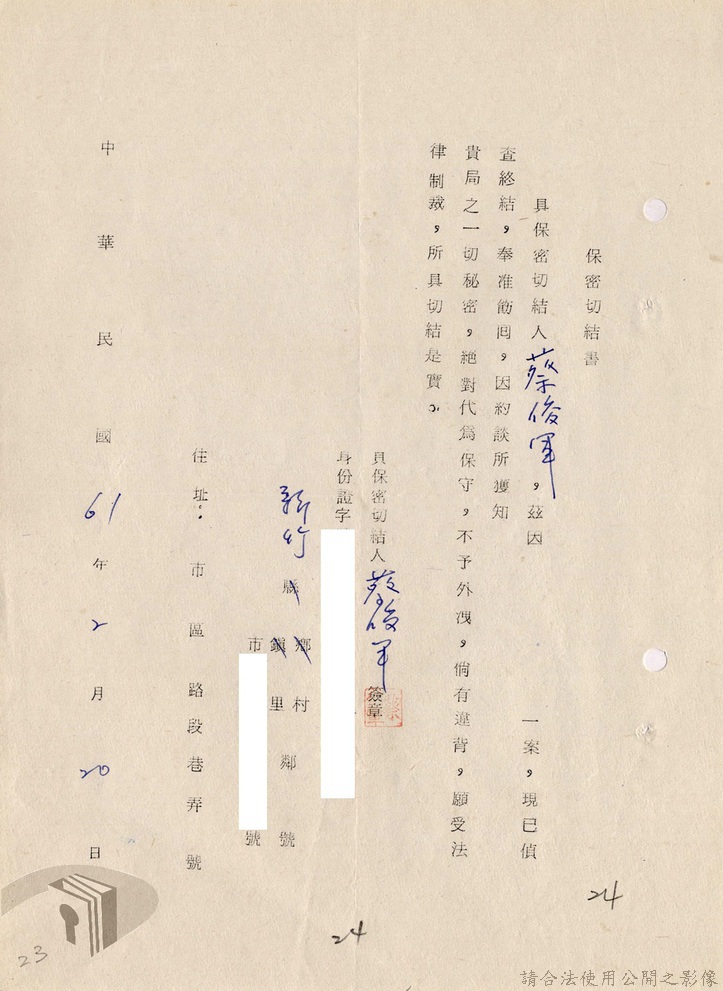 保密切結書
具保密切結人蔡俊軍，茲因 一案，現已偵
查終結，奉准飭回，因約談所獲知
貴局之一切秘密，絕對代為保守，不予外洩，倘有違背，願受法
律制裁，所具切結是實。
具保密切結人蔡俊軍簽章
身份證字
新竹縣鄉村鄰號
鎮里
市號
住址：市區路段巷弄號
中華民國61年2月20日
24
24
23
請合法使用公開之影像